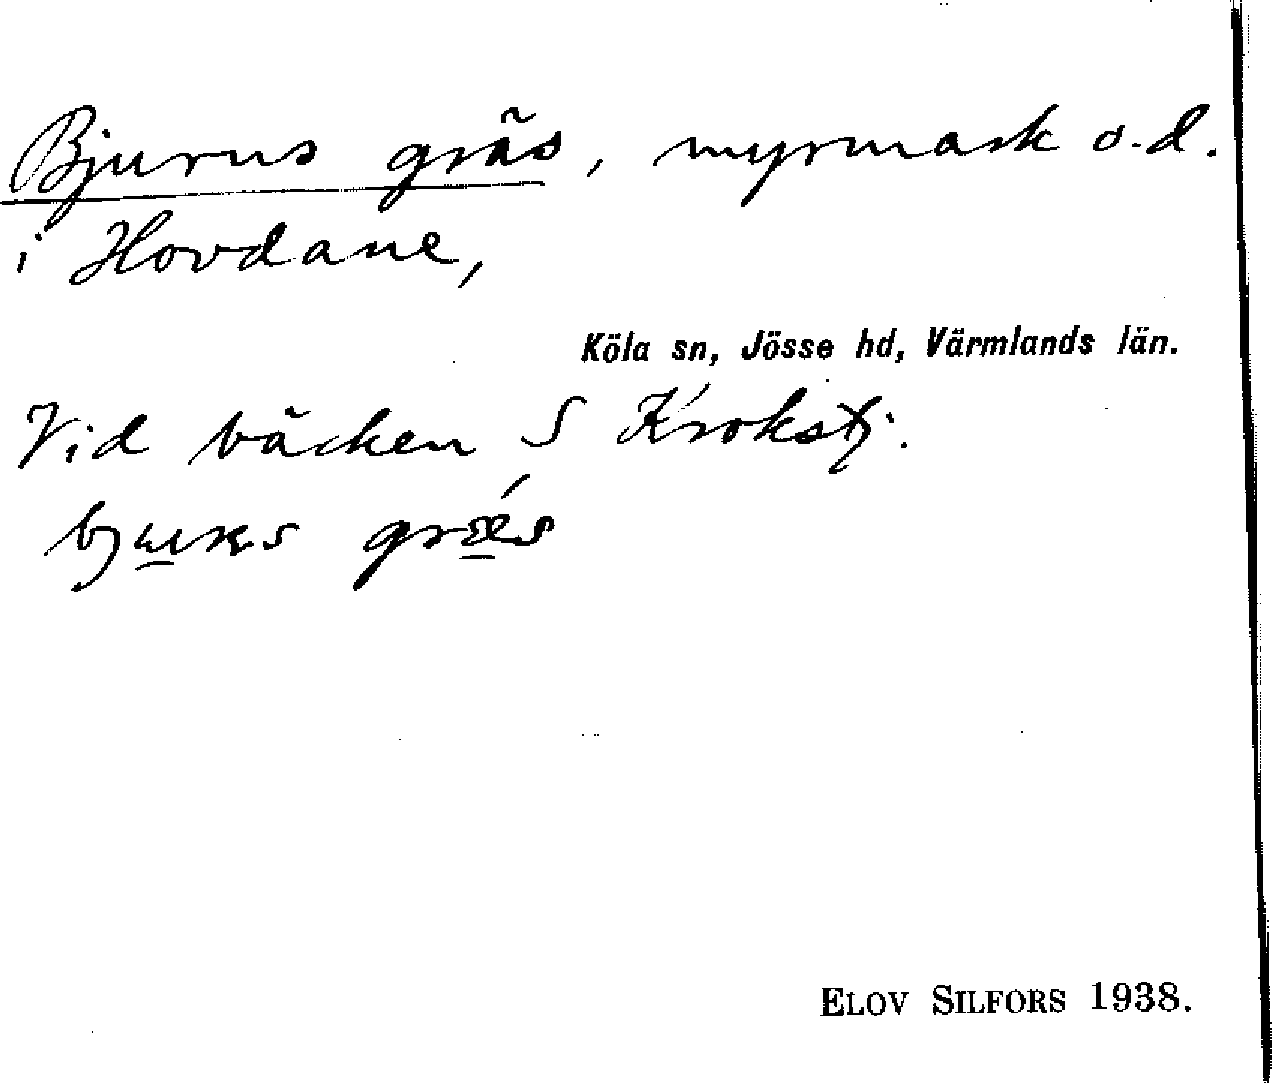 Bjurns gräs, myrmark o.d.
i Hovdane,
Köla sn, Jösse hd, Värmlands län.
Vid bäcken S Krokstj.
ELOV SILFORS 1938.